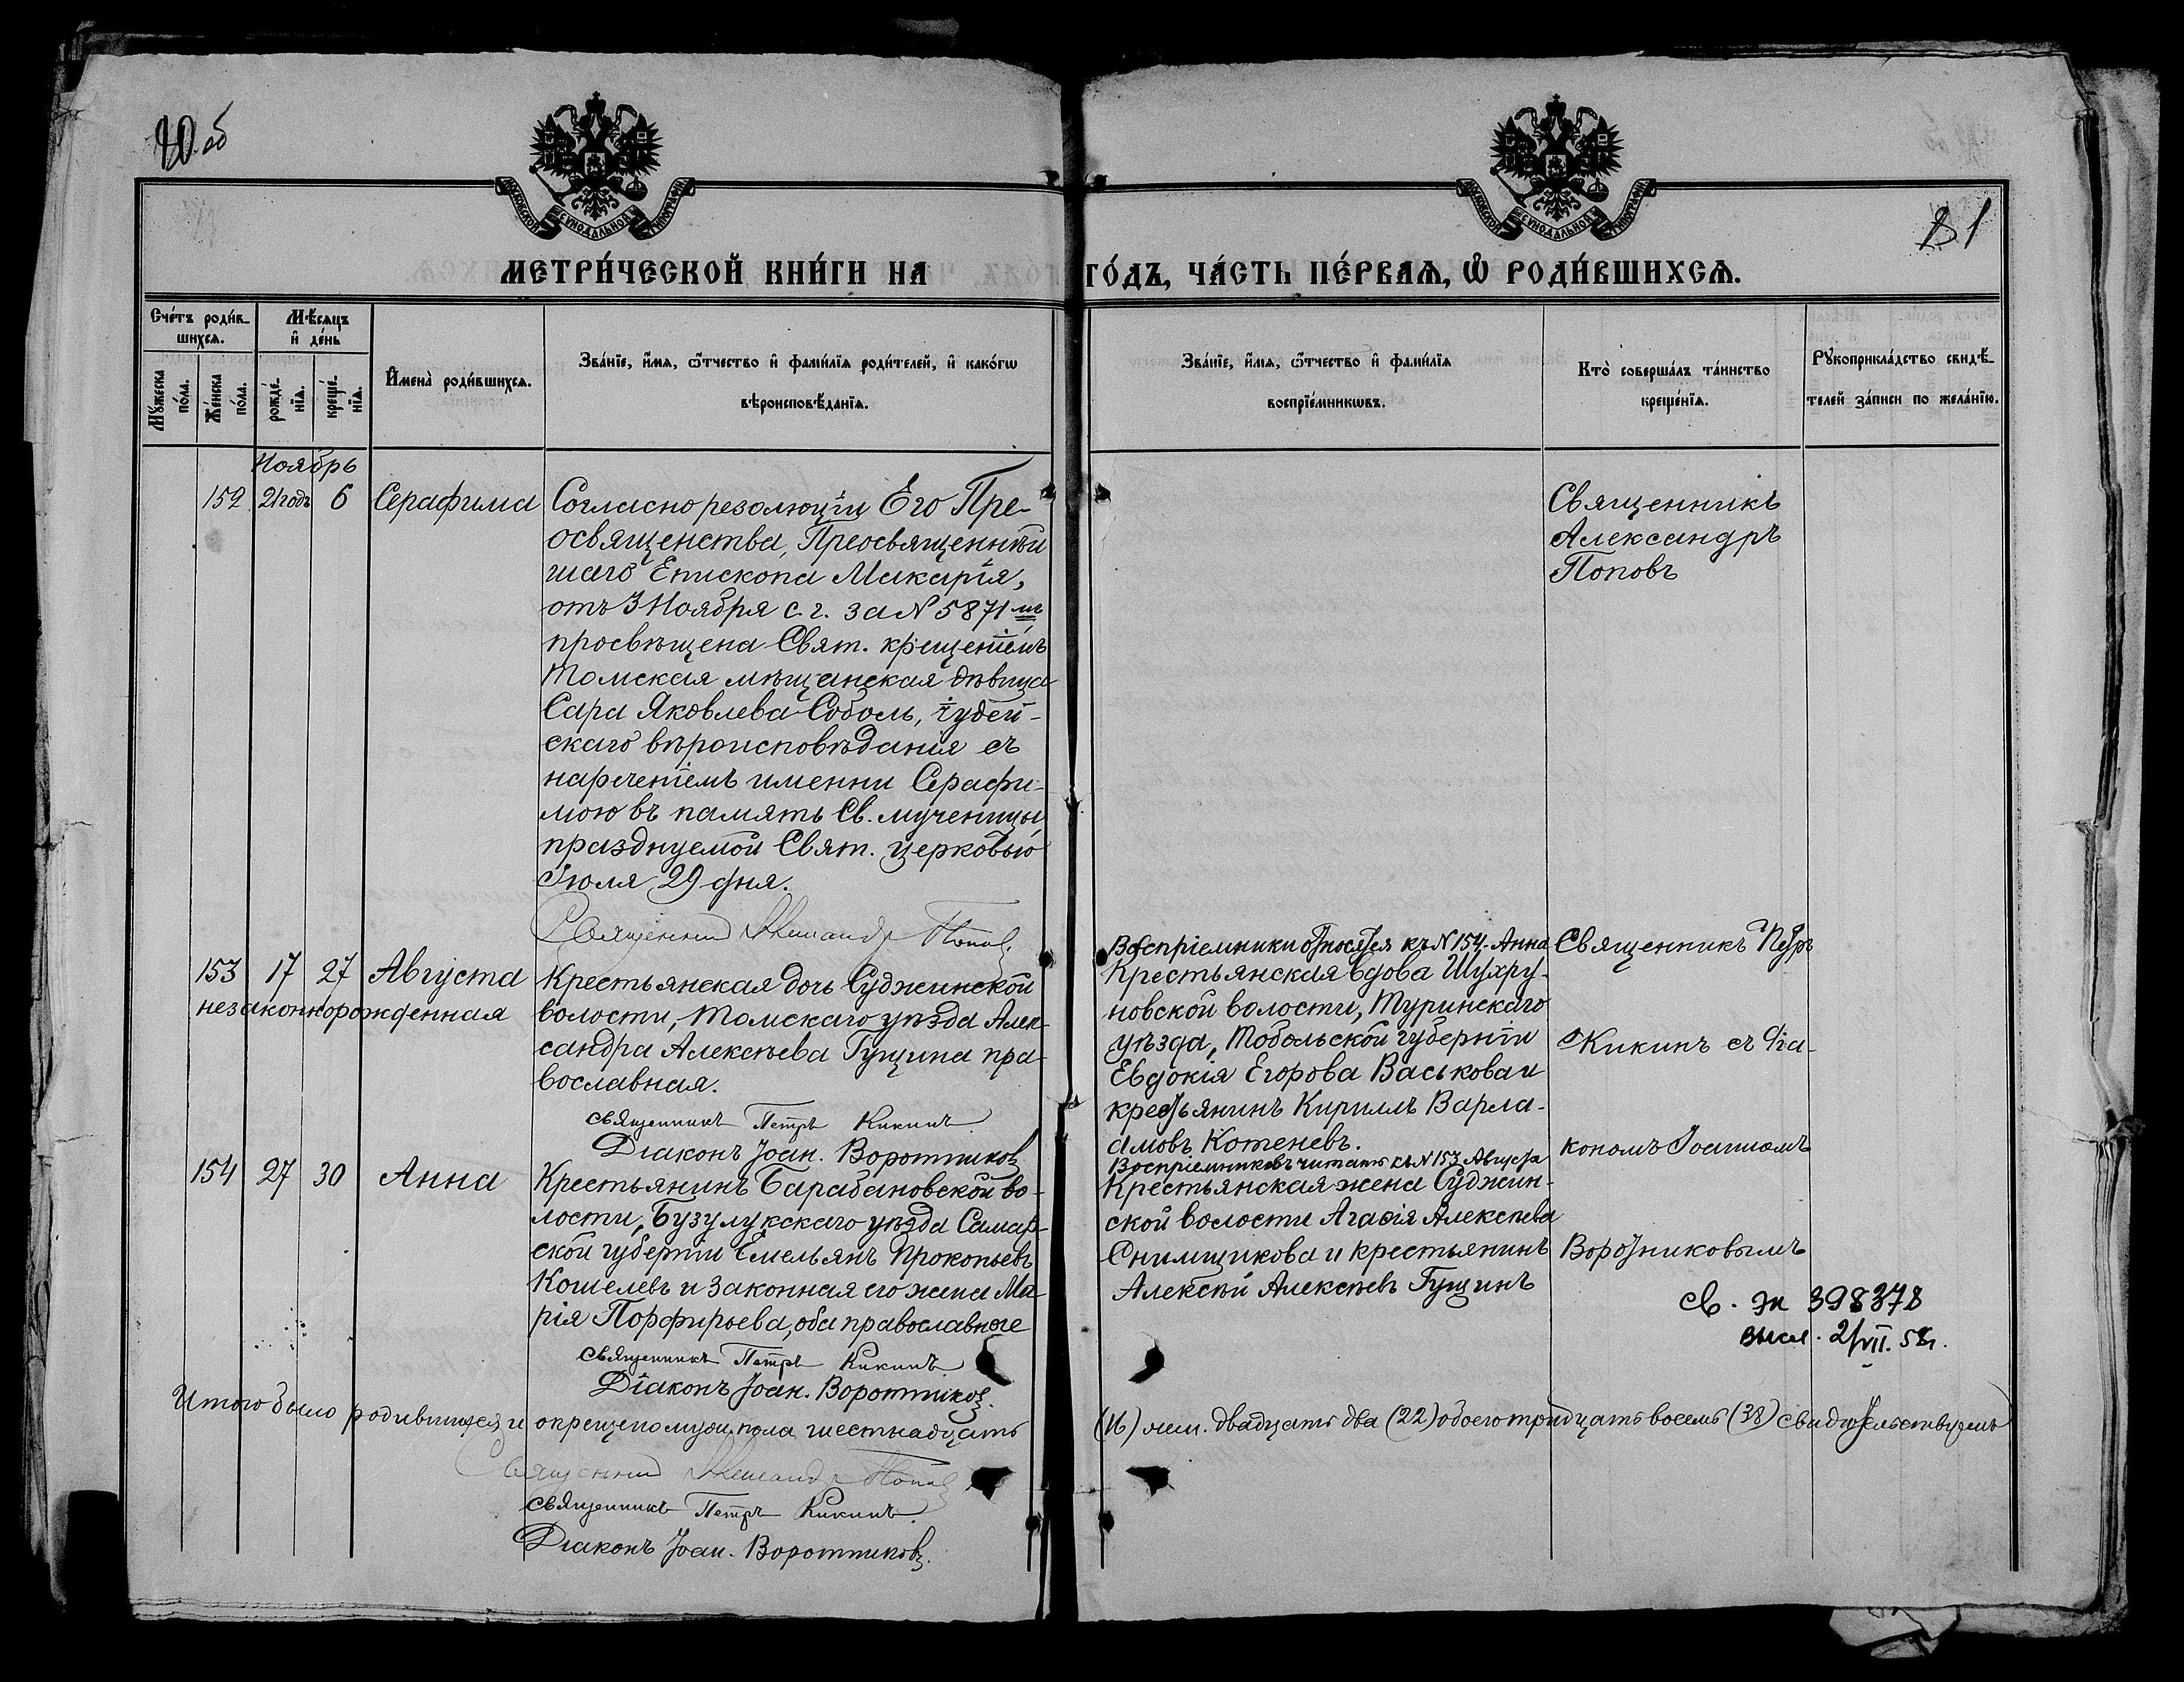 80 об
81
МОСКОВСКОЙ СѴНОДАЛЬНОЙ ТИПОГРАФІИ
МОСКОВСКОЙ СѴНОДАЛЬНОЙ ТИПОГРАФІИ
МЕТРИ́ЧЕСКОЙ КНИ́ГИ НА ГО́ДЪ, ЧА́СТЬ ПЕ́РВАѦ, Ѡ҆ РОДИ́ВШИХСѦ.
Сче́тъ роди́в-
шихсѧ.
Мѣ́сѧцъ
и҆ де́нь
Мꙋ́жеска
по́ла.
Же́нска
по́ла.
рожде́-
нїѧ.
креще́-
нїѧ.
И҆мена̀ роди́вшихсѧ.
Зва́нїе, и҆́мѧ, ѻ҆́тчество и҆ фами́лїѧ роди́телей, и҆ како́гѡ
вѣроисповѣ́данїѧ.
Зва́нїе, и҆́мѧ, ѻ҆́тчество и҆ фами́лїѧ
воспрїе́мникѡвъ.
Кто̀ соверша́лъ та́инство
креще́нїѧ.
Рꙋкоприкла́дство свидѣ́-
телей за́писи по жела́нїю.
Ноябрь
152 21 годъ 6 Серафима
Согласно резолюціи Его Пре-
освященства, Преосвященнѣй
шаго Епископа Макарія,
отъ 3 Ноября с. г. за № 5871 мъ
просвѣщена Свят. крещеніемъ
Томская мѣщанская дѣвица
Сара Яковлева Соболь, іудей-
скаго вѣроисповѣданія съ
нареченіемъ именни Серафи-
мою въ память Св. мученицы
празднуемой Свят. церковью
Іюля 29 дня.
Священникъ Александръ Поповъ
Священникъ
Александръ
Поповъ
153 17 27 Августа
незаконнорожденная
Крестьянская дочь Суджинской
волости, Томскаго уѣзда Алек-
сандра Алексѣева Гущина пра-
вославная.
священникъ Петръ Кикинъ
Діаконъ Іоан. Воротниковъ
Воспріемники относятся къ № 154. Анна
Крестьянская вдова Шухру-
новской волости, Туринскаго
уѣзда, Тобольской губерніи
Евдокія Егорова Васькова и
крестьянинъ Кириллъ Варла-
амовъ Котеневъ.
Священникъ Петръ
Кикинъ съ діа-
кономъ Іоанномъ
Воротниковымъ
154 27 30 Анна
Крестьянинъ Барабановской во-
лости, Бузулукскаго уѣзда Самар-
ской губерніи Емельянъ Прокопьевъ
Кошелевъ и законная его жена Ма-
рія Порфирьева, оба православные
священникъ Петръ Кикинъ
Діаконъ Іоан. Воротниковъ.
Воспріемниковъ читать къ № 153 Августа
Крестьянская жена Суджин-
ской волости Агафія Алексѣева
Снимщикова и крестьянинъ
Алексѣй Алексѣевъ Гущинъ
398378
высл. 2/VII. 58г.
Итого было родившихся и окрещено муж. пола шестнадцать (16) жен. двадцать два (22) обоего тридцать восемь (38) свидѣтельствуемъ
Священникъ Александръ Поповъ
священникъ Петръ Кикинъ.
Діаконъ Іоан. Воротниковъ.